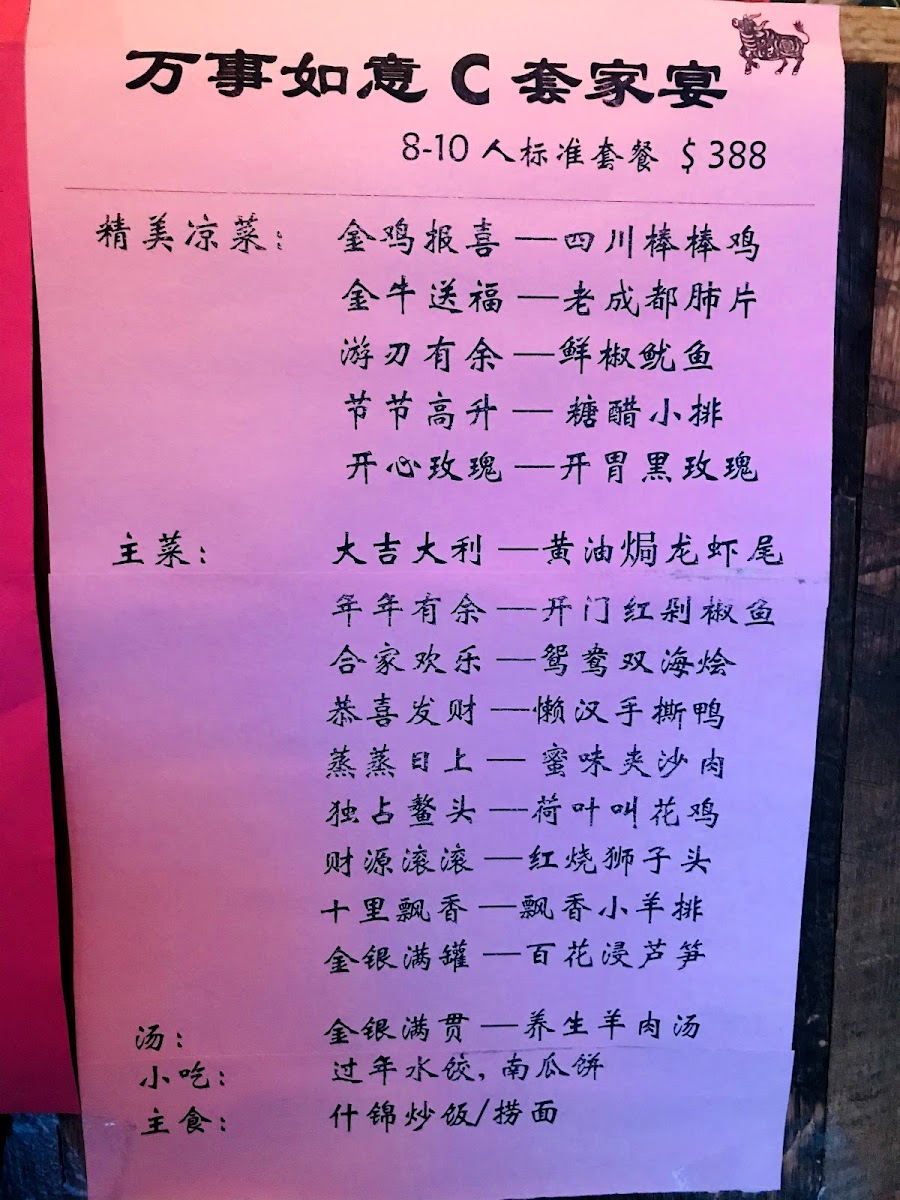 万事如意 C 套家宴
8-10 人标准套餐 $ 388
精美凉菜: 金鸡报喜 — 四川棒棒鸡
金牛送福 — 老成都肺片
游刃有余 — 鲜椒鱿鱼
节节高升 — 糖醋小排
开心玫瑰 — 开胃黑玫瑰
主菜: 大吉大利 — 黄油焗龙虾尾
年年有余 — 开门红剁椒鱼
合家欢乐 — 鸳鸯双海烩
恭喜发财 — 懒汉手撕鸭
蒸蒸日上 — 蜜味夹沙肉
独占鳌头 — 荷叶叫花鸡
财源滚滚 — 红烧狮子头
十里飘香 — 飘香小羊排
金银满罐 — 百花浸芦笋
汤: 金银满贯 — 养生羊肉汤
小吃: 过年水饺, 南瓜饼
主食: 什锦炒饭/捞面